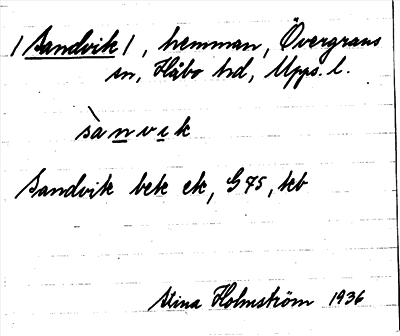 /Sandvik/, hemman, Övergrans
sn, Håbo hd, Upps. l.
sànvik
Sandvik bek ek, G 45, kb
Stina Holmström 1936